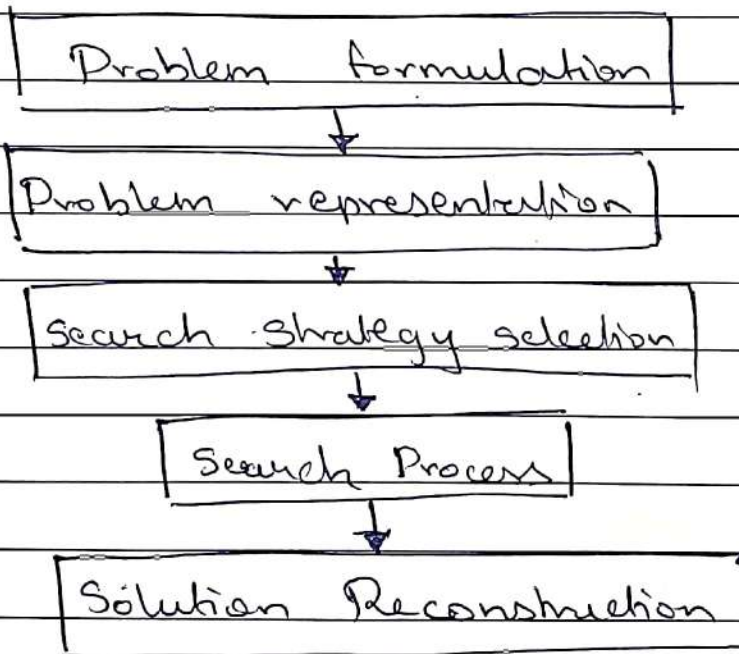 Problem formulation
Problem representation
Search strategy selection
Search Process
Solution Reconstruction